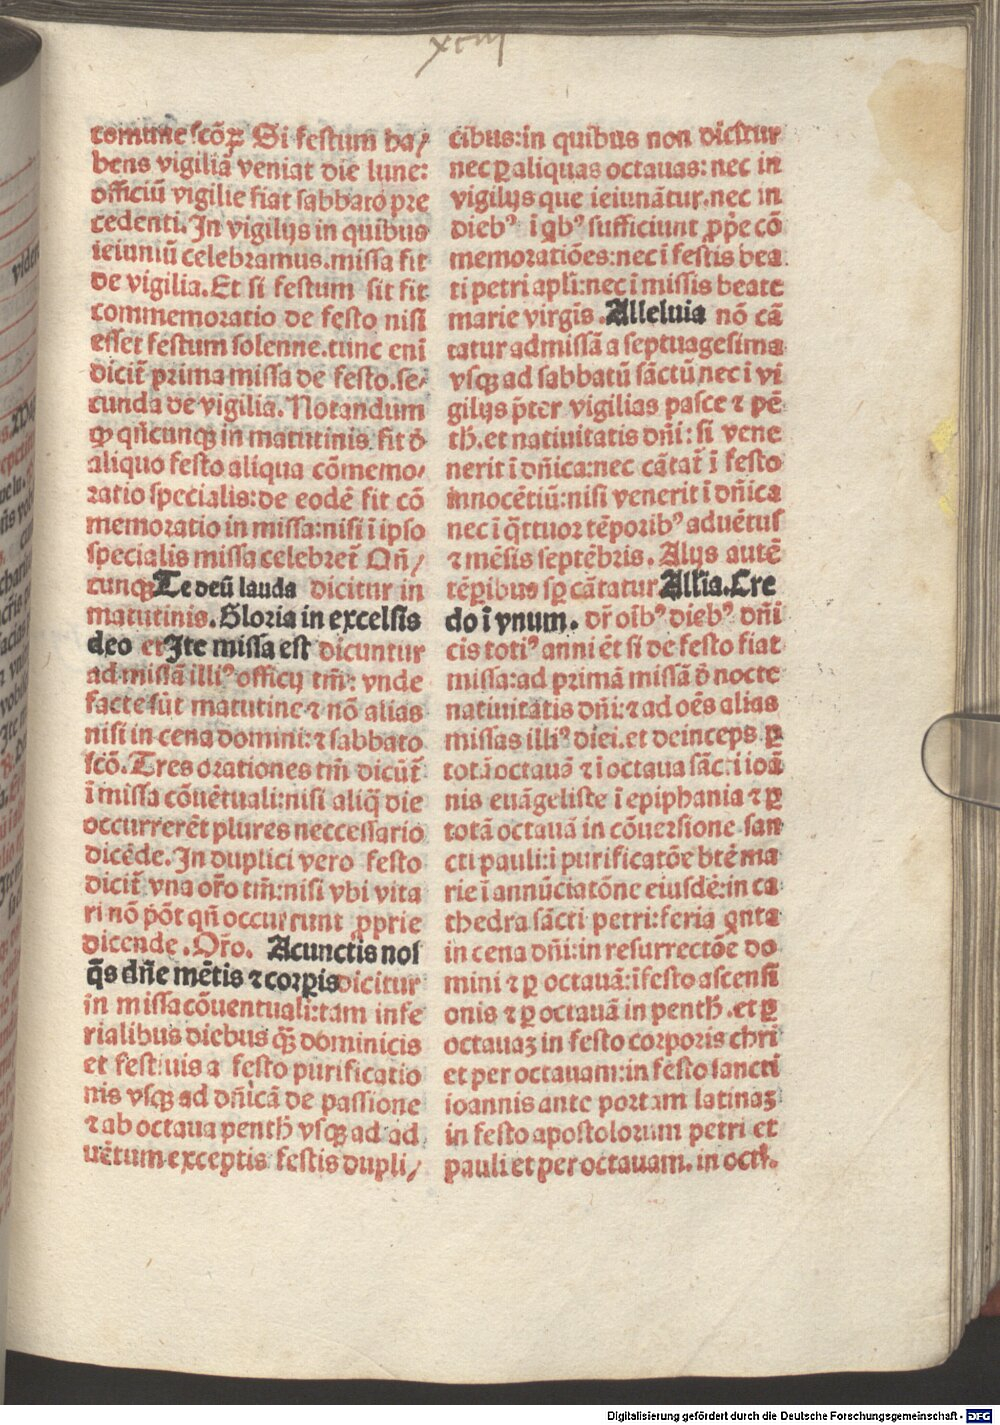 xciij
comune scōꝝ Si festum ha/
bens vigiliā veniat die lune:
officiū vigilie fiat sabbato pre
cedenti. In vigilijs in quibus
ieiuniū celebramus. missa fit
de vigilia. Et si festum sit fit
commemoratio de festo nisi
esset festum solenne. tunc eni
dicit̄ prima missa de festo. se/
cunda de vigilia. Notandum
ꝙ qn̄cunqꝫ in matutinis fit ꝺ̄
aliquo festo aliqua cōmemo/
ratio specialis: de eodē fit cō
memoratio in missa: nisi ī ipso
specialis missa celebret̄ Qn̄/
cunqꝫ Te deū lauda dicitur in
matutinis. Gloria in excelsis
deo et Ite missa est dicuntur
ad missā illiꝰ officij tm̄: vnde
facte sūt matutine ⁊ nō alias
nisi in cena domini: ⁊ sabbato
scō. Tres orationes tm̄ dicūt̄
ī missa cōuētuali: nisi aliq̄ die
occurrerēt plures neccessario
dicēde. In duplici vero festo
dicit̄ vna or̄o tm̄: nisi vbi vita
ri nō pōt qn̄ occurrunt ꝓprie
dicende. Or̄o. Acunctis nos
q̄s dn̄e mētis ⁊ corꝑis dicitur
in missa cōuentuali: tam in fe
rialibus diebus qꝫ̄ dominicis
et festiuis a festo purificatio
nis vsqꝫ ad dn̄icā de passione
⁊ ab octaua penth̄ vsqꝫ ad ad
uētum exceptis festis dupli/
cibus: in quibus non dicitur
nec ꝑ aliquas octauas: nec in
vigilijs que ieiunātur. nec in
diebꝰ ī qͥbꝰ sufficiunt ꝓpr̄e cō
memoratiōes: nec ī festis bea
ti petri apli: nec ī missis beate
marie virgis. Alleluia nō cā
tatur ad missā a septuagesima
vsqꝫ ad sabbatū sāctū nec ī vi
gilijs p̄ter vigilias pasce ⁊ pē
th̄. et natiuitatis dn̄i: si vene
nerit ī dn̄ica: nec cātat̄ ī festo
innocētiū: nisi venerit ī dn̄ica
nec ī q̄ttuor tēporibꝰ aduētus
⁊ mēsis septēbris. Alijs autē
tēꝑibus sꝑ cātatur Allīa. Cre
do ī vnum. dr̄ oībꝰ diebꝰ dn̄i
cis totiꝰ anni ēt si de festo fiat
missa: ad primā missā ꝺ̄ nocte
natiuitatis dn̄i: ⁊ ad oēs alias
missas illiꝰ diei. et deinceps ꝑ
totā octauā ⁊ ī octaua sāc. i ioā
nis euāgeliste ī epiphania ⁊ ꝑ
totā octauā in cōuersione san
cti pauli: ī purificatōe btē ma
rie ī annūciatōne eiusdē: in ca
thedra sācti petri: feria qͥnta
in cena dn̄i: in resurrectōe do
mini ⁊ ꝑ octauā: ī festo ascensi
onis ⁊ ꝑ octauā in penth̄. et ꝑ
octauaꝫ in festo corporis chri
et per octauam: in festo sancti
ioannis ante portam latinaꝫ
in festo apostolorum petri et
pauli et per octauam. in octa.
Digitalisierung gefördert durch die Deutsche Forschungsgemeinschaft - DFG